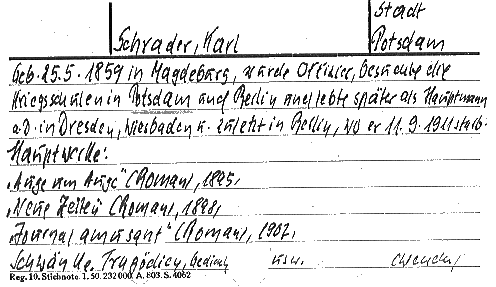 Stadt
Schrader, Karl Potsdam
Geb. 25.5.1859 in Magdeburg, wurde Offizier, besuchte die
Kriegsschulen in Potsdam und Berlin und lebte später als Hauptmann
a.D. in Dresden, Wiesbaden u. zuletzt in Berlin, wo er 11.9.1911 starb.
Hauptwerke:
„Auge um Auge" (Roman), 1895,
„Neue Zeiten (Roman), 1898,
„Journal amusant" (Roman), 1902,
Schwänke, Tragödien, usw.
Reg. 10. Stichnote 1. 50. 232000. A. 803. S. 4062